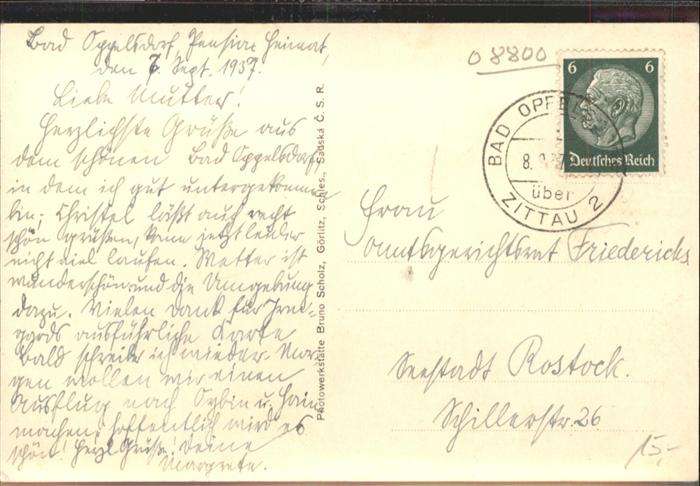 Bad Oppelsdorf, Pension Heimat,
den 7. Sept. 1937.
Liebe Mutter!
Herzlichste Grüße aus
dem schönen Bad Oppelsdorf,
in dem ich gut untergekommen
bin; Christel läßt auch recht
schön grüßen, kann jetzt leider
nicht viel laufen. Wetter ist
wunderschön und die Umgebung
dazu. Vielen Dank für Irm-
gards ausführliche Karte
bald schreibe ich wieder. Mor-
gen wollen wir einen
Ausflug nach Oybin u. Hain
machen; hoffentlich wird es
schön! Herzl. Grüße! Deine
Margrete.
Photowerkstätte Bruno Scholz, Görlitz, Schles., Sadská Č. S. R.
o 8800
6 6
Deutsches Reich
BAD OPPE
8. 9. 37
über
ZITTAU 2
Frau
Amtsgerichtsrat Friederichs
Seestadt Rostock.
Schillerstr. 26
15,-